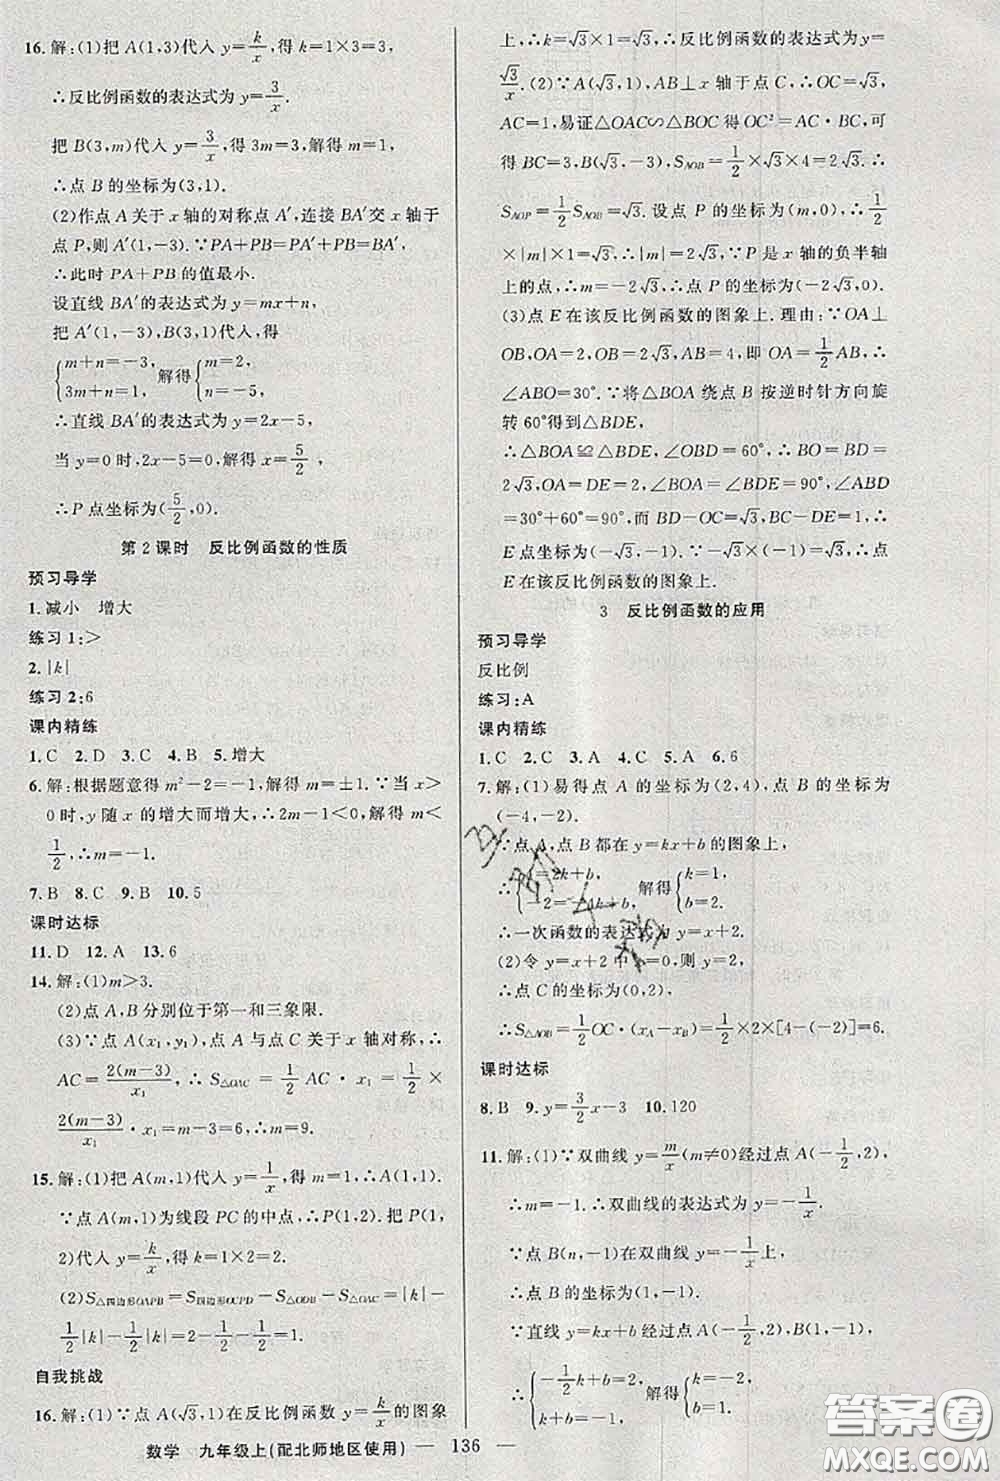 16.解:(1)把 A(1,3)代入 y=k/x,得 k=1×3=3,
∴反比例函数的表达式为 y=3/x.
把 B(3,m)代入 y=3/x,得 3m=3,解得 m=1,
∴点 B 的坐标为(3,1).
(2)作点 A 关于 x 轴的对称点 A′,连接 BA′交 x 轴于
点 P,则 A′(1,-3).∵PA+PB=PA′+PB=BA′,
∴此时 PA+PB 的值最小.
设直线 BA′的表达式为 y=mx+n,
把 A′(1,-3),B(3,1)代入,得
{m+n=-3, 3m+n=1, 解得{m=2, n=-5.
∴直线 BA′的表达式为 y=2x-5,
当 y=0 时,2x-5=0,解得 x=5/2,
∴P 点坐标为(5/2,0).
第 2 课时 反比例函数的性质
预习导学
1.减小 增大
练习 1:>
2.|k|
练习 2:6
课内精练
1.C 2.D 3.C 4.B 5.增大
6.解:根据题意得 m²-2=-1,解得 m=±1.∵当 x>
0时,y 随 x 的增大而增大,∴2m-1<0,解得 m<
1/2,∴m=-1.
7.B 8.C 9.B 10.5
课时达标
11.D 12.A 13.6
14.解:(1)m>3.
(2)点 A,B 分别位于第一和三象限.
(3)∵点 A(x₁,y₁),点 A 与点 C 关于 x 轴对称,∴
AC=2(m-3)/x₁,∴S△OAC=1/2 AC·x₁=1/2×
2(m-3)/x₁·x₁=m-3=6,∴m=9.
15.解:(1)把 A(m,1)代入 y=1/x,得 m=1,∴A(1,1).
∵点 A(m,1)为线段 PC 的中点,∴P(1,2).把 P(1,
2)代入 y=k/x,得 k=1×2=2.
(2)S△四边形OAPB=S四边形OCPD-S△ODB-S△OAC=|k|-
1/2|k|-1/2|k|=2-1/2-1/2=1.
自我挑战
16.解:(1)∵点 A(√3,1)在反比例函数 y=k/x 的图象
上,∴k=√3×1=√3,∴反比例函数的表达式为 y=
√3/x.(2)∵A(√3,1),AB⊥x 轴于点 C,∴OC=√3,
AC=1,易证△OAC∽△BOC 得 OC²=AC·BC,可
得 BC=3,B(√3,-3),S△AOB=1/2×√3×4=2√3.∴
S△AOP=1/2S△AOB=√3.设点 P 的坐标为(m,0),∴1/2
×|m|×1=√3,∴|m|=2√3.∵P 是 x 轴的负半轴
上的点,∴m=-2√3,∴点 P 的坐标为(-2√3,0).
(3)点 E 在该反比例函数的图象上.理由:∵OA⊥
OB,OA=2,OB=2√3,AB=4,即 OA=1/2AB,∴
∠ABO=30°.∵将△BOA 绕点 B 按逆时针方向旋
转 60°得到△BDE,
∴△BOA≌△BDE,∠OBD=60°,∴BO=BD=
2√3,OA=DE=2,∠BOA=∠BDE=90°,∠ABD=
30°+60°=90°,BC-DE=1,BD-OC=√3,∴
E 点坐标为(-√3,-1).∵-√3×(-1)=√3,∴点
E 在该反比例函数的图象上.
3 反比例函数的应用
预习导学
反比例
练习:A
课内精练
1.C 2.C 3.A 4.C 5.A 6.6
7.解:(1)易得点 A 的坐标为(2,4),点 B 的坐标为
(-4,-2).
∵点 A,点 B 都在 y=kx+b 的图象上,
∴{4=2k+b, -2=-4k+b, 解得{k=1, b=2.
∴一次函数的表达式为 y=x+2.
(2)令 y=x+2 中 x=0,则 y=2,
∴点 C 的坐标为(0,2),
∴S△AOB=1/2OC·(xA-xB)=1/2×2×[4-(-2)]=6.
课时达标
8.B 9.y=3/2x-3 10.120
11.解:(1)∵双曲线 y=m/x(m≠0)经过点 A(-1/2,2),
∴m=-1.∴双曲线的表达式为 y=-1/x.
∵点 B(n,-1)在双曲线 y=-1/x上,
∴点 B 的坐标为(1,-1).
∵直线 y=kx+b 经过点 A(-1/2,2),B(1,-1),
∴{-1/2k+b=2, k+b=-1, 解得{k=-2, b=1.
数学 九年级上(配北师地区使用) — 136 —
答案圈
MXQE.COM